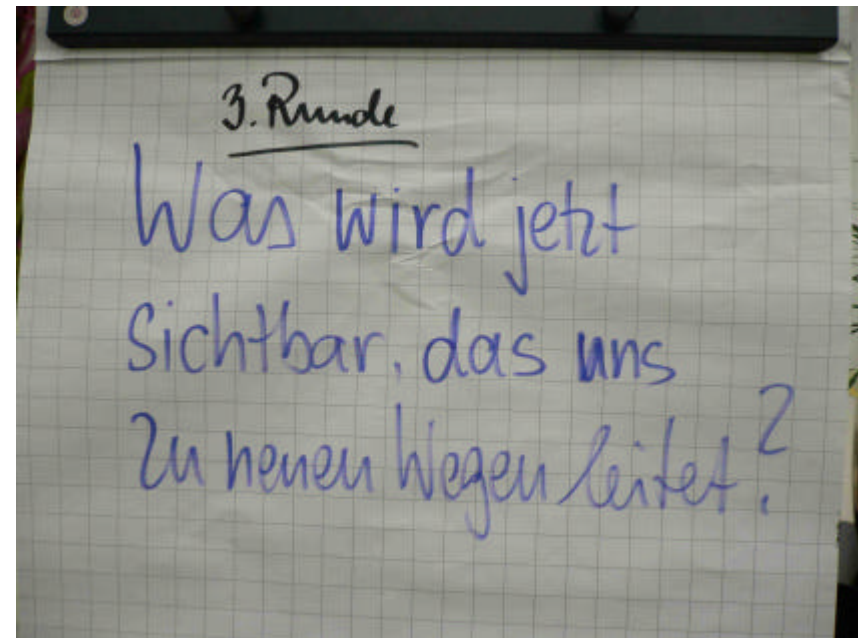 3. Runde
Was wird jetzt
Sichtbar, das uns
zu neuen Wegen leitet?